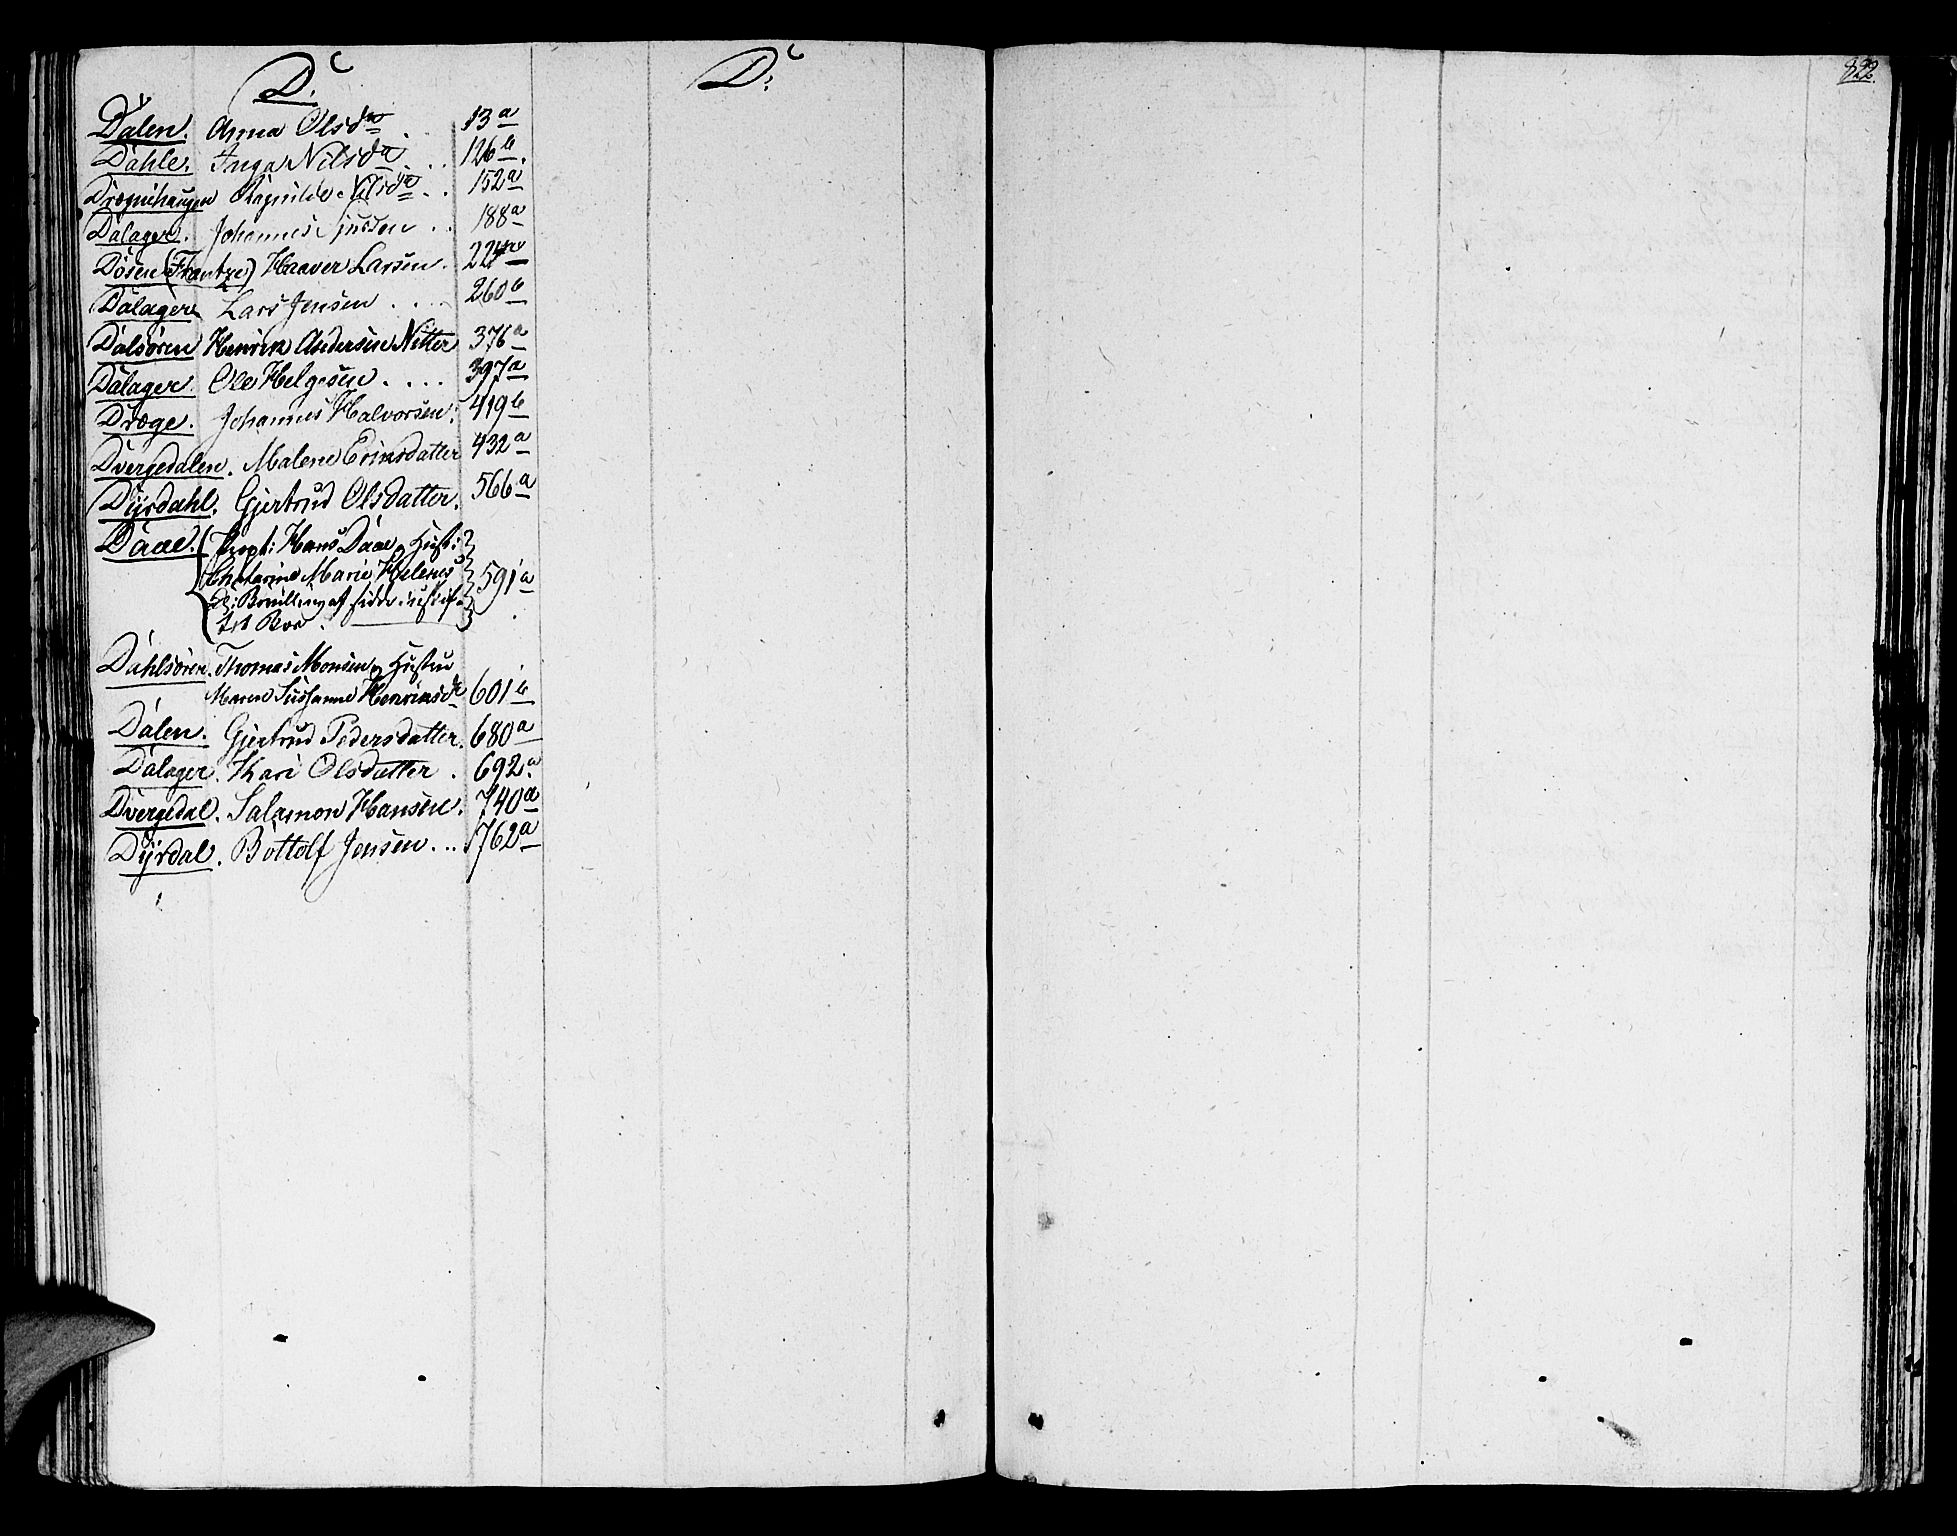 D.
D.
822
Dalen. Anna Olsda 13a
Dahle. Inga Nilsda . . 126b.
Drægnihaugen Ragnilde Nilsda . . 152a
Dalager. Johannes . . 188a
Døsen (Frantze) Haaver Larsen . 224
Dalager Lars Jensen . . . . 260b
Dalsøren Henrik Andersen Nitter 376a
Dalager. Ole Helgesen . . . . 397a
Dræge. Johannes Halvorsen: 419b
Dvergedalen. Malene Eriksdatter 432a
Dyrdahl. Gjertrud Olsdatter. 566a
Daae. Hans Daae og Hust:
Chatarine Marie Helenes 591a
af
Boe.
Dahlsøren. Thomas Monsen og Hustru
Maren Susanne Henriksdr 601b
Dalen. Gjertrud Pedersdatter. 680a
Dalager. Kari Olsdatter . 692a.
Dvergedal. Salamon Hansen. 740a
Dyrdal. Bottolf Jensen . . . 762a